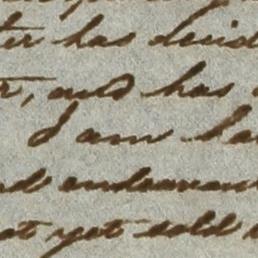 ter has decid
r, and has
I am ha
nd endeavou
ot yet sold